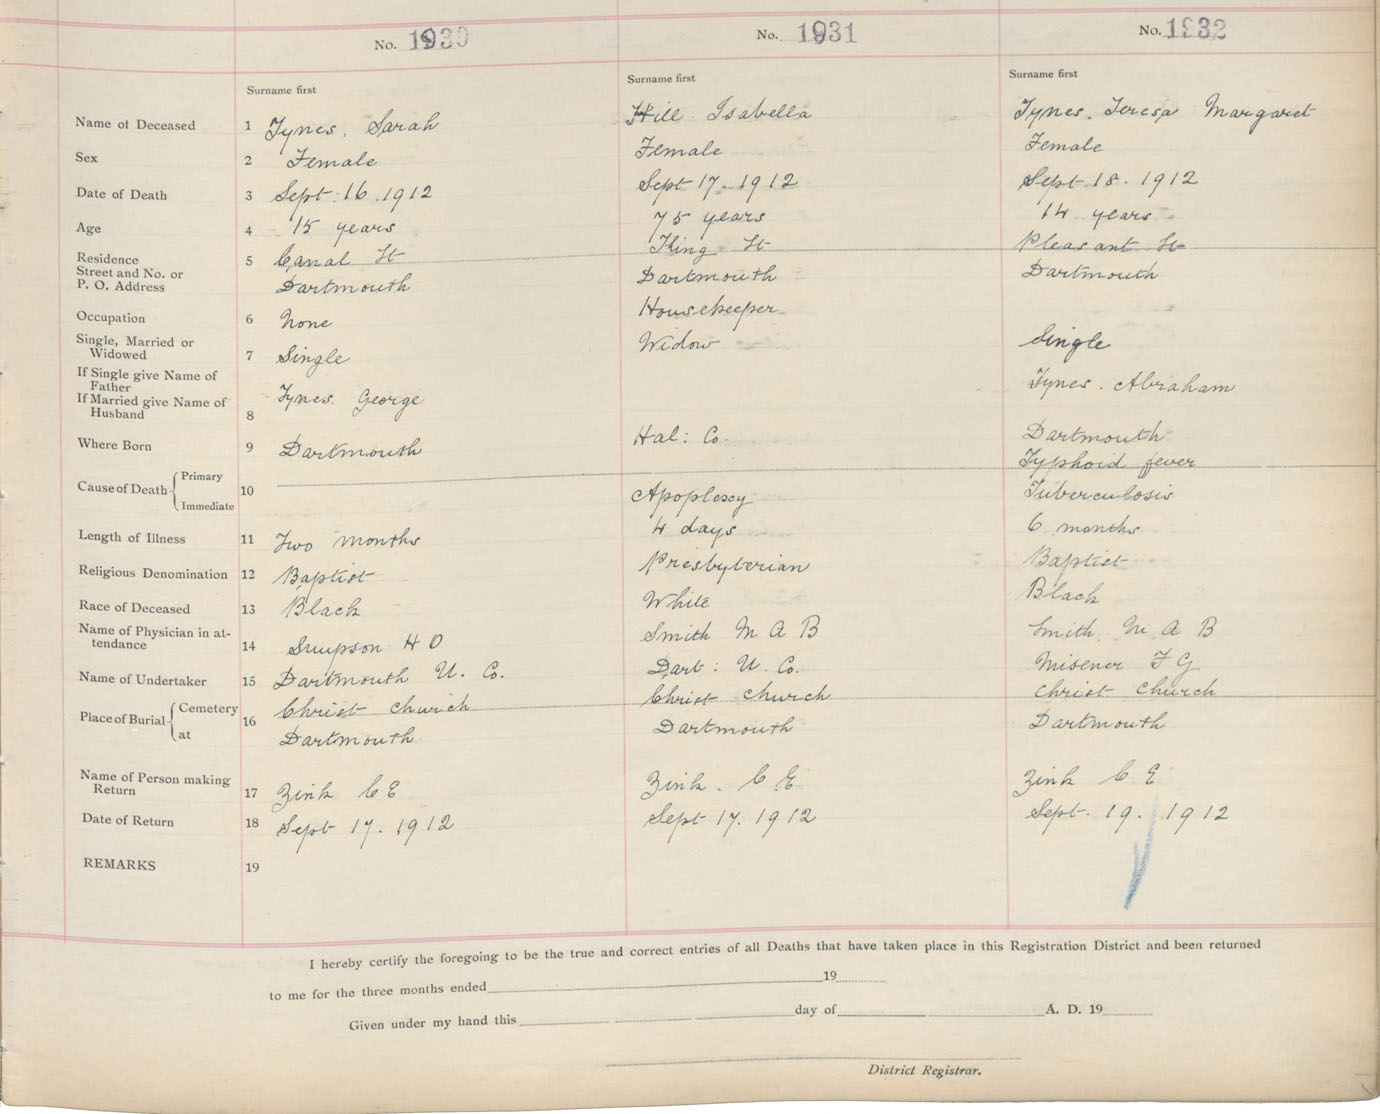 No. 1930 No. 1931 No. 1932
Surname first Surname first Surname first
Name of Deceased 1 Tynes, Sarah Hill Isabella Tynes, Teresa Margaret
Sex 2 Female Female Female
Date of Death 3 Sept. 16. 1912 Sept 17. 1912 Sept 18. 1912
Age 4 15 years 75 years 14 years
Residence 5 Canal St King St Pleasant St
Street and No. or
P. O. Address Dartmouth Dartmouth Dartmouth
Occupation 6 None Housekeeper
Single, Married or
Widowed 7 Single Widow Single
If Single give Name of
Father
If Married give Name of
Husband 8 Tynes. George Tynes. Abraham
Where Born 9 Dartmouth Hal: Co. Dartmouth
Cause of Death Primary Typhoid fever
10
Immediate Apoplexy Tuberculosis
Length of Illness 11 Two months 4 days 6 months
Religious Denomination 12 Baptist Presbyterian Baptist
Race of Deceased 13 Black White Black
Name of Physician in at-
tendance 14 Simpson H D Smith M A B Smith. M A B
Name of Undertaker 15 Dartmouth U. Co. Dart: U. Co. Misener F G
Place of Burial Cemetery 16 Christ church Christ church Christ church
at Dartmouth Dartmouth Dartmouth
Name of Person making
Return 17 Zink C E Zink. C E Zink C E
Date of Return 18 Sept 17. 1912 Sept 17. 1912 Sept. 19. 1912
REMARKS 19
I hereby certify the foregoing to be the true and correct entries of all Deaths that have taken place in this Registration District and been returned
to me for the three months ended 19
Given under my hand this day of A. D. 19
District Registrar.